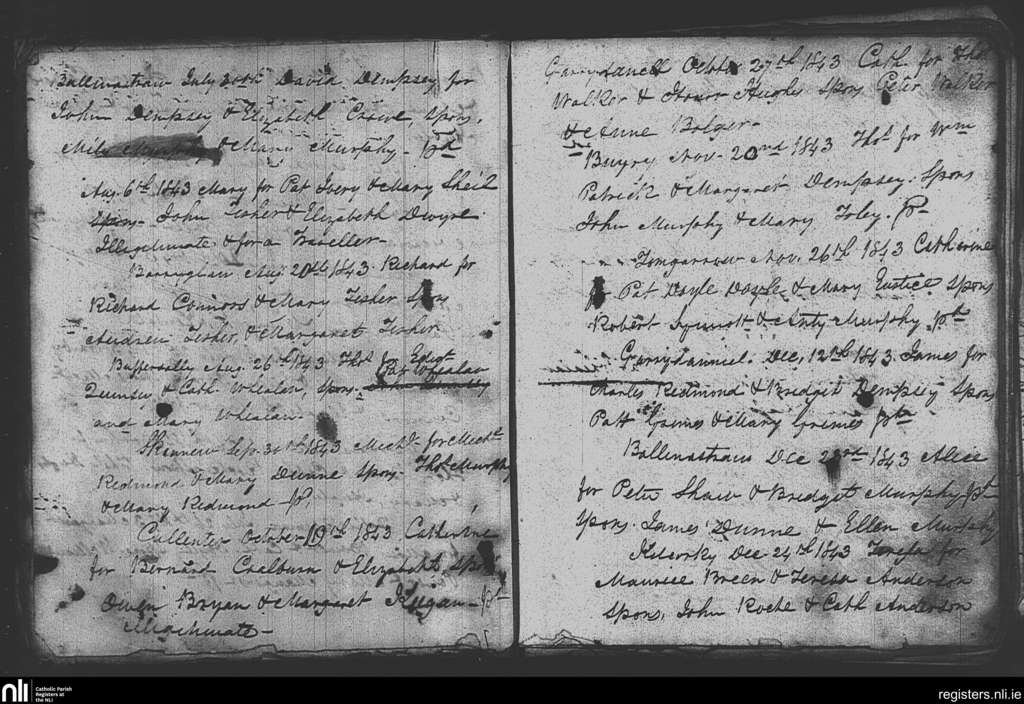 Ballinastraw July 30th David Dempsey for
John Dempsey & Elizabeth Crowe, Spons,
Mile & Mary Murphy - Pd
Aug. 6th 1843 Mary for Pat Ivory & Mary Sheil
Spons - John Fisher & Elizabeth Dwyre
Illegitimate & for a Traveller -
Aug 20th 1843 Richard for
Richard Connors & Mary Fisher Spons
Andrew Fisher, & Margaret Fisher
Aug. 26th 1843 Thos for Edwd
Quinsey & Cath Whealan, Spons - Pat Whealan
and Mary Whealan -
Sep. 30th 1843 Michl for Michl
Redmond & Mary Dunne Spons - Thos Murphy
& Mary Redmond - P,
Cullentra October 19th 1843 Catherine
for Bernard Coalburn & Elizabeth, Spons
Owen Bryan & Margaret - Pt
Illegitimate -
Garrydaniell October 27th 1843 Cath. for Thos
Walker & Hughes Spons Peter Walker
& Anne Bolger -
Nov - 20nd 1843 Thos for Wm
Patrick & Margaret Dempsey. Spons
John Murphy & Mary Foley. P -
Tomgarrow Nov. 26th 1843 Catherine
for Pat Doyle Doyle & Mary Justice Spons
Robert Synnott & Anty Murphy Pt
Garrydanniel. Dec, 12th 1843 James for
Charles Redmond & Bridget Dempsey Spons
Patt Grimes & Mary Grimes Pt
Ballinastraw Dec 23rd 1843 Alice
for Peter Shaw & Bridget Murphy - Pt -
Spons. James Dunne & Ellen Murphy
Dec - 24th 1843 Teresa for
Maurice Breen & Teresa Anderson
Spons, John Roche & Cath Anderson
nli
Catholic Parish
Registers at
the NLI
registers.nli.ie